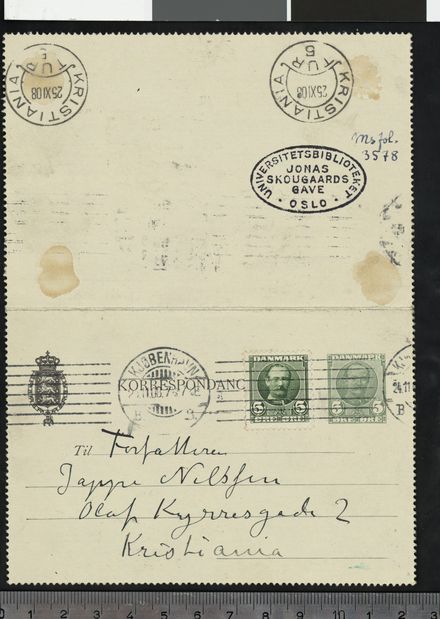 KRISTIANIA
25XI08
TUR
5
KRISTIANIA
25XI08
TUR
5
Ms fol.
3578
UNIVERSITETSBIBLIOTEKET
JONAS
SKOUGAARDS
GAVE
OSLO
KJØBENHAVN
KORRESPONDANC
B
DANMARK
5 5
DANMARK
5 5
24.11
B
Til Forfatteren
Jappe Nilssen
Olaf Kyrresgade 2
Kristiania
0 1 2 3 4 5 6 7 8 9 10 11 12 13